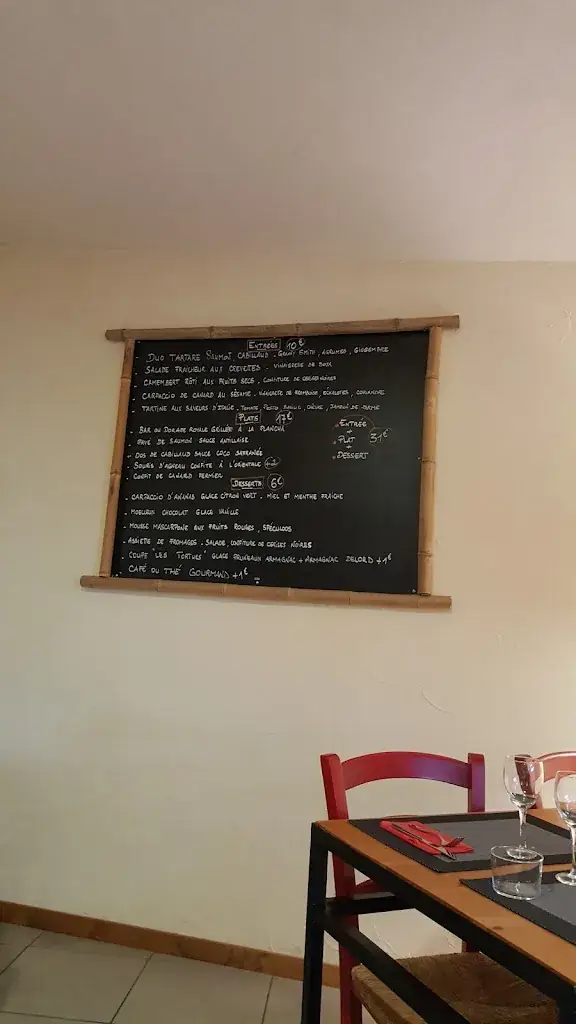 ENTRÉES 10€
- DUO TARTARE SAUMON, CABILLAUD - GRANY SMITH, AGRUMES, GINGEMBRE
- SALADE FRAÎCHEUR AUX CREVETTES - VINAIGRETTE DE
- CAMEMBERT RÔTI AUX FRUITS SECS, CONFITURE DE CERISES NOIRES
- CARPACCIO DE CANARD AU SÉSAME - VINAIGRETTE DE FRAMBOISE, ECHALOTES, CORIANDRE
- TARTINE AUX SAVEURS D'ITALIE - TOMATE, PESTO BASILIC, CHÈVRE, JAMBON DE PARME
PLATS 17€
- BAR OU DORADE ROYALE GRILLÉE À LA PLANCHA
- PAVÉ DE SAUMON SAUCE ANTILLAISE
- DOS DE CABILLAUD SAUCE COCO SAFRANÉE
- SOURIS D'AGNEAU CONFITE À L'ORIENTALE
- CONFIT DE CANARD FERMIER
• ENTRÉE
+
• PLAT 31€
+
• DESSERT
DESSERTS 6€
- CARPACCIO D'ANANAS GLACE CITRON VERT - MIEL ET MENTHE FRAÎCHE
- MOELLEUX CHOCOLAT GLACE VANILLE
- MOUSSE MASCARPONE AUX FRUITS ROUGES, SPÉCULOOS
- ASSIETTE DE FROMAGES - SALADE, CONFITURE DE CERISES NOIRES
- COUPE "LES TORTUES" GLACE PRUNEAUX ARMAGNAC + ARMAGNAC DELORD +1€
- CAFÉ OU THÉ GOURMAND +1€